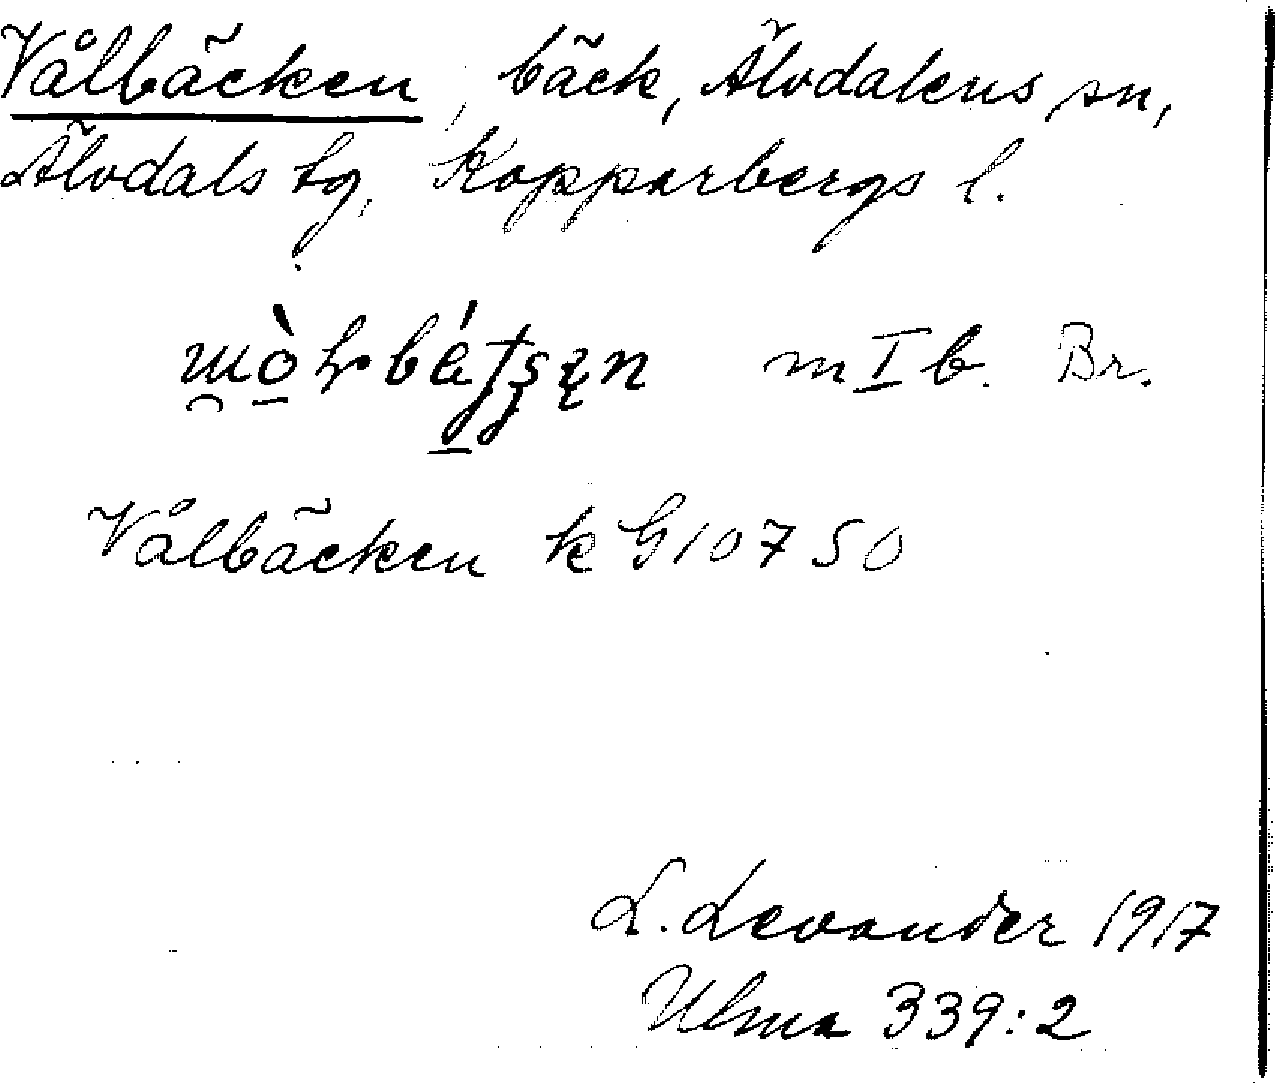 Vålbäcken, bäck, Älvdalens sn,
Älvdals tg, Kopparbergs l.
m I b. Br.
Vålbäcken k G 10750
L. Levander 1917
Ulma 339:2